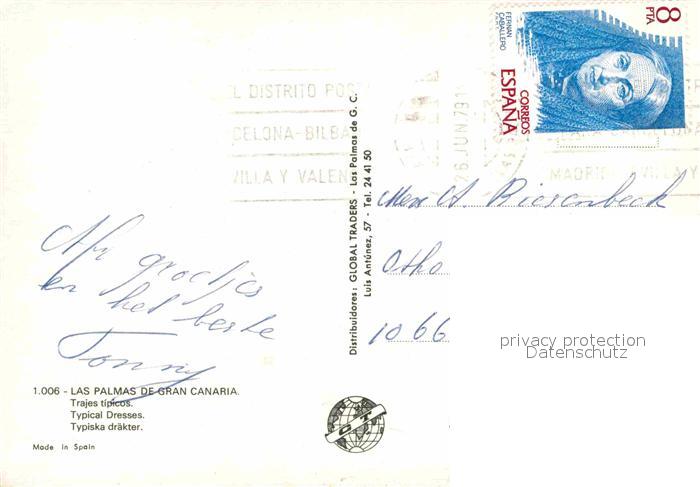 8
PTA
FERNAN
CABALLERO
CORREOS
ESPAÑA
EL DISTRITO POST
CELONA-BILBA
VILLA Y VALEN
26 JUN 79
MADRI VILLA Y
groetjes
en het beste
Tonny
A. Riesenbeck
Otho
1066
privacy protection
Datenschutz
Distribuidores: GLOBAL TRADERS - Las Palmas de G. C.
Luis Antúnez, 57 - Tel. 24 41 50
1.006 - LAS PALMAS DE GRAN CANARIA.
Trajes típicos.
Typical Dresses.
Typiska dräkter.
Made in Spain